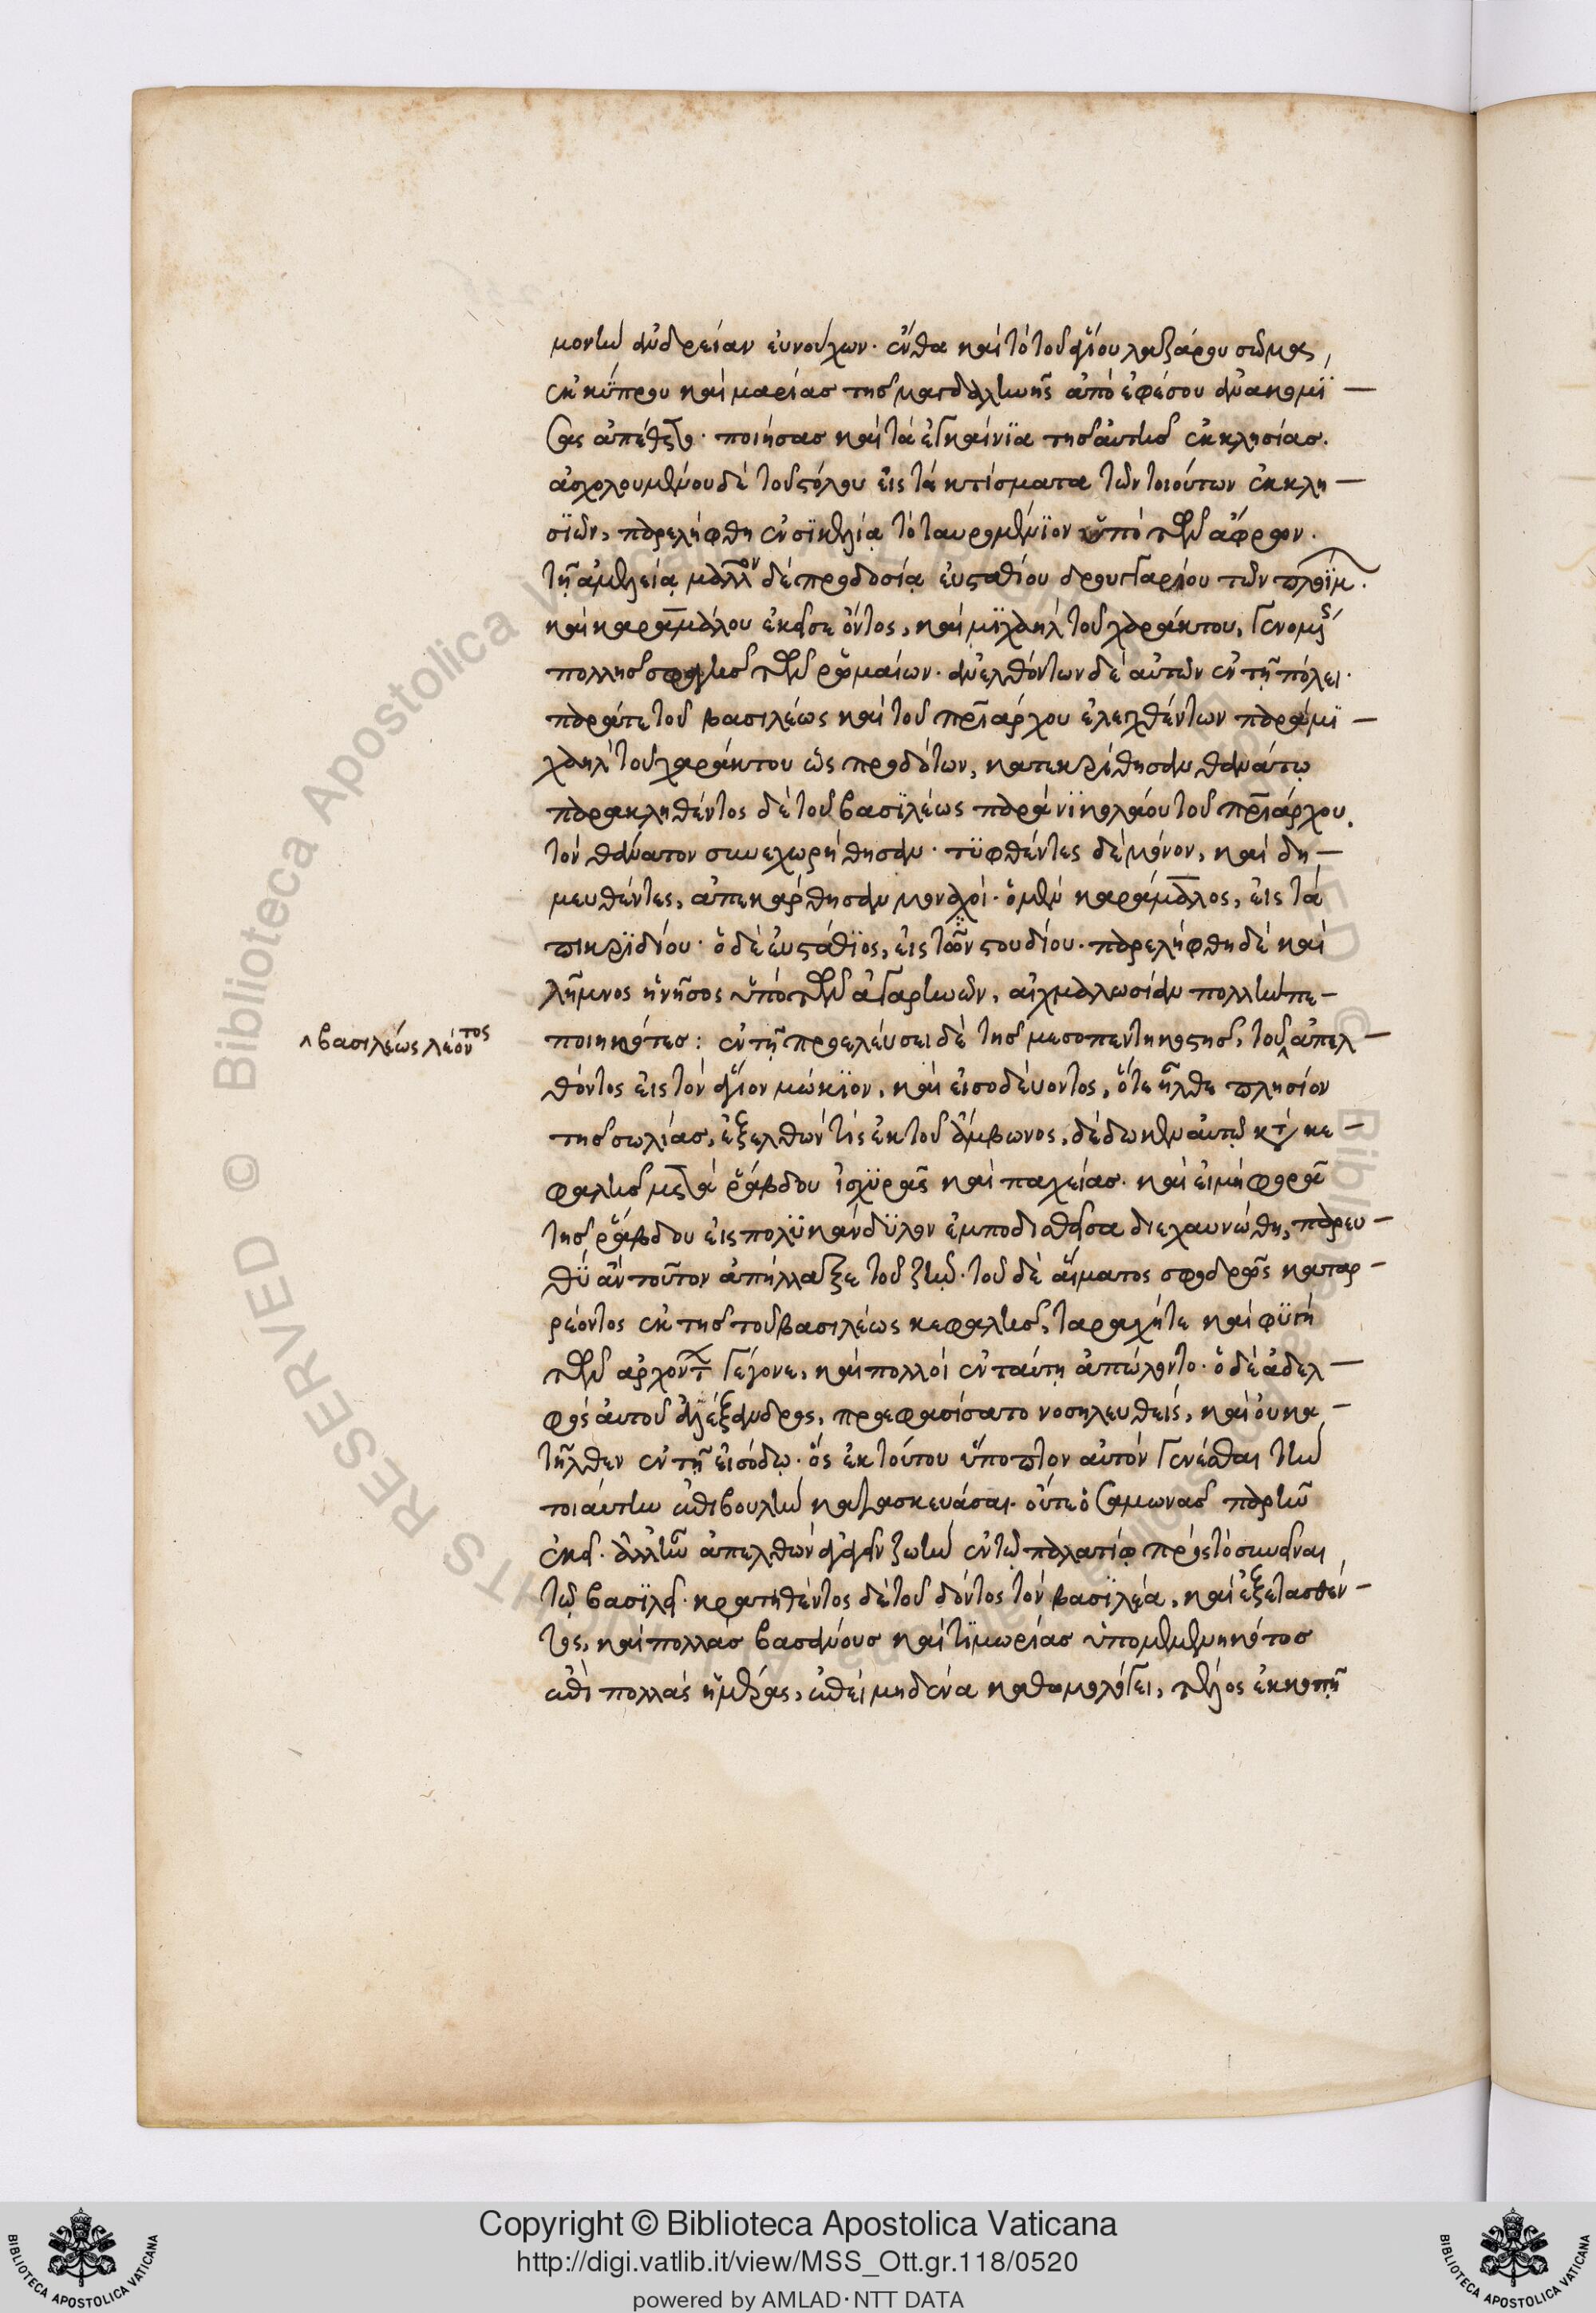 μονὴν ἀνδρείαν εὐνούχων· ἔνθα καὶ τὸ τοῦ ἁγίου λαζάρου σῶμα,
ἐκ κύπρου καὶ μαρίας τῆς μαγδαληνῆς ἀπὸ ἐφέσου ἀνακομϊ —
σας ἀπέθετο· ποιήσας καὶ τὰ ἐγκαίνϊα τῆς αὐτῆς ἐκκλησίας.
ἀσχολουμένου δὲ τοῦ στόλου εἰς τὰ κτίσματα τῶν τοιούτων ἐκκλη —
σϊῶν, παρελήφθη ἐν σϊκελίᾳ τὸ ταυρομένϊον ὑπὸ τῶν ἄφρων.
τῇ ἀμελείᾳ μᾶλλον δὲ προδοσίᾳ εὐσταθίου δρουγγαρίου τῶν πλοϊμ.
καὶ καραμάλου ἐκεῖσε ὄντος, καὶ μϊχαὴλ τοῦ χαράκτου, γενομένης
πολλῆς σφαγῆς τῶν ῥωμαίων· ἀνελθόντων δὲ αὐτῶν ἐν τῇ πόλει·
παρά τε τοῦ βασιλέως καὶ τοῦ πριάρχου ἐλεγχθέντων παρὰ μϊ —
χαὴλ τοῦ χαράκτου ὡς προδότων, κατεκρίθησαν θανάτῳ
παρακληθέντος δὲ τοῦ βασϊλέως παρὰ νϊκολάου τοῦ πριάρχου.
τὸν θάνατον συνεχωρήθησαν· τϋφθέντες δὲ μόνον, καὶ δη —
μευθέντες, ἀπεκάρθησαν μοναχοί· ὁ μὲν καράμαλος, εἰς τὰ
πικρϊδίου· ὁ δὲ εὐστάθϊος, εἰς τῶν στουδίου· παρελήφθη δὲ καὶ
λῆμνος ἡ νῆσος ὑπὸ τῶν ἀγαρηνῶν, αἰχμαλωσίαν πολλὴν πε —
^ βασιλέως λέοντος
ποιηκότες: ἐν τῇ προελεύσει δὲ τῆς μεσοπεντηκοστῆς, τοῦ ^ ἀπελ —
θόντος εἰς τὸν ἅγιον μώκϊον, καὶ εἰσοδεύοντος, ὅτε ἦλθε πλησίον
τῆς σωλίας, ἐξελθών τις ἐκ τοῦ ἄμβωνος, δέδωκεν αὐτῷ κτ κε —
φαλῆς μετὰ ῥάβδου ἰσχϋρᾶς καὶ παχείας· καὶ εἰ μὴ φορᾶ
τῆς ῥάβδου εἰς πολϋκάνδϋλον ἐμποδισθεῖσα διεχαυνώθη, παρευ —
θϋ ἂν τοῦτον ἀπήλλαξε τοῦ ζῆν· τοῦ δὲ αἵματος σφοδρῶς καταρ —
ρέοντος ἐκ τῆς τοῦ βασιλέως κεφαλῆς, ταραχή τε καὶ φϋγὴ
τῶν ἀρχόντ γέγονε, καὶ πολλοὶ ἐν ταύτῃ ἀπώλοντο· ὁ δὲ ἀδελ —
φὸς αὐτοῦ ἀλέξανδρος, προεφασίσατο νοσηλευθείς, καὶ οὐ κα —
τῆλθεν ἐν τῇ εἰσόδῳ· ὃς ἐκ τούτου ὕποπτον αὐτὸν γενέσθαι τὴν
τοιαύτην ἐπιβουλὴν κατασκευάσαι· οὔτε ὁ σαμωνᾶς παρῆν
ἐκεῖ· ἀλλ' ἦν ἀπελθὼν ἀγαγεῖν ζωὴν ἐν τῷ παλατίῳ πρὸς τὸ συνεῖναι
τῷ βασϊλεῖ· κρατηθέντος δὲ τοῦ δόντος τὸν βασϊλέα, καὶ ἐξετασθέν —
τος, καὶ πολλὰς βασάνους καὶ τϊμωρίας ὑπομεμενηκότος
ἐπὶ πολλὰς ἡμέρας, ἐπεὶ μηδένα καθωμολόγει, τέλος ἐκκοπῇ
Copyright © Biblioteca Apostolica Vaticana
http://digi.vatlib.it/view/MSS_Ott.gr.118/0520
powered by AMLAD·NTT DATA